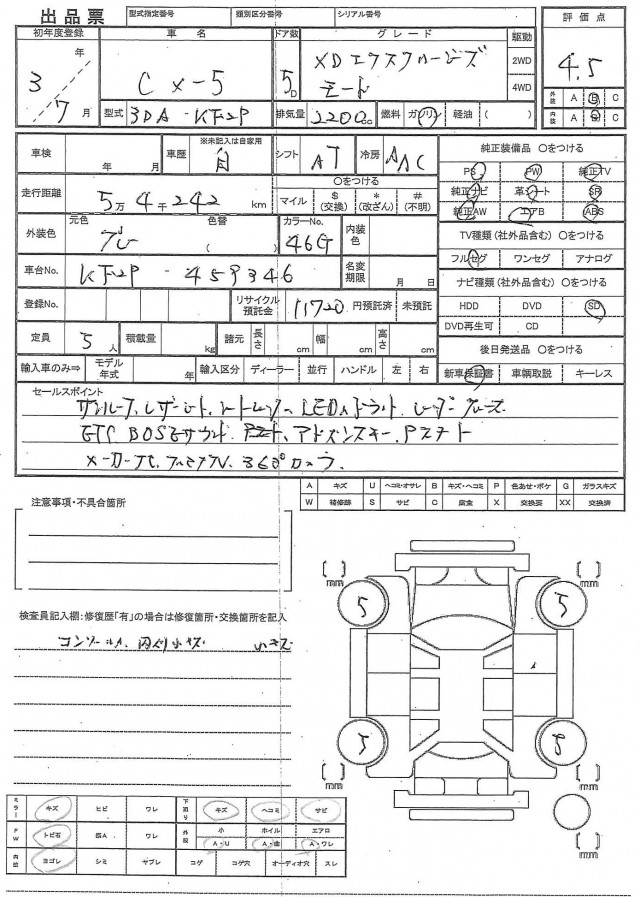 出品票
型式指定番号 類別区分番号 シリアル番号
初年度登録 車名 ドア数 グレード 駆動 評価点
3年 7月 CX-5 5D XDエクスクルーシブモード 2WD 4WD 4.5
型式 3DA-KF2P 排気量 2200cc 燃料 ガソリン・軽油( )
外装 A B C
内装 A B C
車検 年 月 車歴 ※未記入は自家用 自 シフト AT 冷房 AAC
走行距離 5万4千242km 〇をつける マイル $(交換) *(改ざん) #(不明)
外装色 元色 色替 ( ) カラーNo. 46G 内装色
車台No. KF2P - 459346 名変期限 月 日
登録No. リサイクル預託金 11720 円預託済 未預託
定員 5人 積載量 kg 諸元 長さ cm 幅 cm 高さ cm
輸入車のみ⇒ モデル年式 年 輸入区分 ディーラー・並行 ハンドル 左・右
純正装備品 〇をつける
PS PW 純正TV
純正ナビ 革シート SR
純正AW エアB ABS
TV種類(社外品含む) 〇をつける
フルセグ ワンセグ アナログ
ナビ種類(社外品含む) 〇をつける
HDD DVD SD
DVD再生可 CD
後日発送品 〇をつける
新車保証書 車輌取説 キーレス
セールスポイント
サンルーフ、レザーシート、シートヒーター、LEDヘッドライト、レーダークルーズ
ETC BOSEサウンド アドバンスキー
フルセグTV、360°カメラ
A キズ U ヘコミ・オサレ B キズ・ヘコミ P 色あせ・ボケ G ガラスキズ
W 補修跡 S サビ C 腐食 X 交換要 XX 交換済
注意事項・不具合箇所
検査員記入欄:修復歴「有」の場合は修復箇所・交換箇所を記入
内外小キズ
[ ]mm [ ]mm
5 5
5 8
[ ]mm [ ]mm
[ ]mm
ミラー キズ ヒビ ワレ 下廻り キズ ヘコミ サビ
FW トビ石 ワレ 外装 小 A・U ホイル A・曲 エアロ A・ワレ
内装 ヨゴレ シミ ヤブレ コゲ コゲ穴 オーディオ穴 スレ